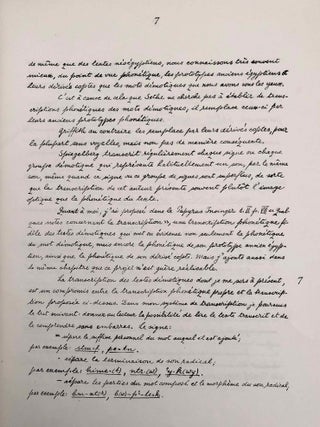 7
de même que des textes néoégyptiens, nous connaissons très souvent
mieux, du point de vue phonétique, les prototypes anciens égyptiens et
leurs dérivés coptes que les mots démotiques que nous avons sous les yeux.
C'est à cause de cela que Sethe ne cherche pas à établir de trans-
criptions phonétiques des mots démotiques, il remplace ceux-ci par
leurs anciens prototypes phonétiques.
Griffith au contraire les remplace par leurs dérivés coptes, pour
la plupart sans voyelles, mais non pas de manière conséquente.
Spiegelberg transcrit régulièrement chaque signe ou chaque
groupe démotique qui représente habituellement un son, par le même
son, même quand ce signe ou ce groupe de signes sont superflus, de sorte
que la transcription de cet auteur présente souvent plutôt l'image
optique que la phonétique du texte.
Quant à moi, j'ai proposé dans le Papyrus Insinger t. II
qques notes concernant la transcription, une transcription phonétique
des textes démotiques qui met en évidence non seulement la phonétique
du mot démotique, mais encore la phonétique de son prototype ancien égyp-
tien, ainsi que la phonétique de son dérivé copte. Mais j'ajoutai aussi dans
le même chapitre que ce projet n'est guère réalisable.
La transcription des textes démotiques dont je me sers à présent,
est un compromis entre la transcription phonétique propre et la transcrip-
tion proposée ci-dessus. Dans mon système de transcription, je poursuis
le but suivant: donner au lecteur la possibilité de lire le texte transcrit et de
le comprendre sans embarras. Le signe:
- sépare le suffixe personnel du mot auquel il est ajouté;
par exemple:
· sépare la terminaison de son radical;
par exemple:
- sépare les parties du mot composé et le morphème du son radical;
par exemple:
7